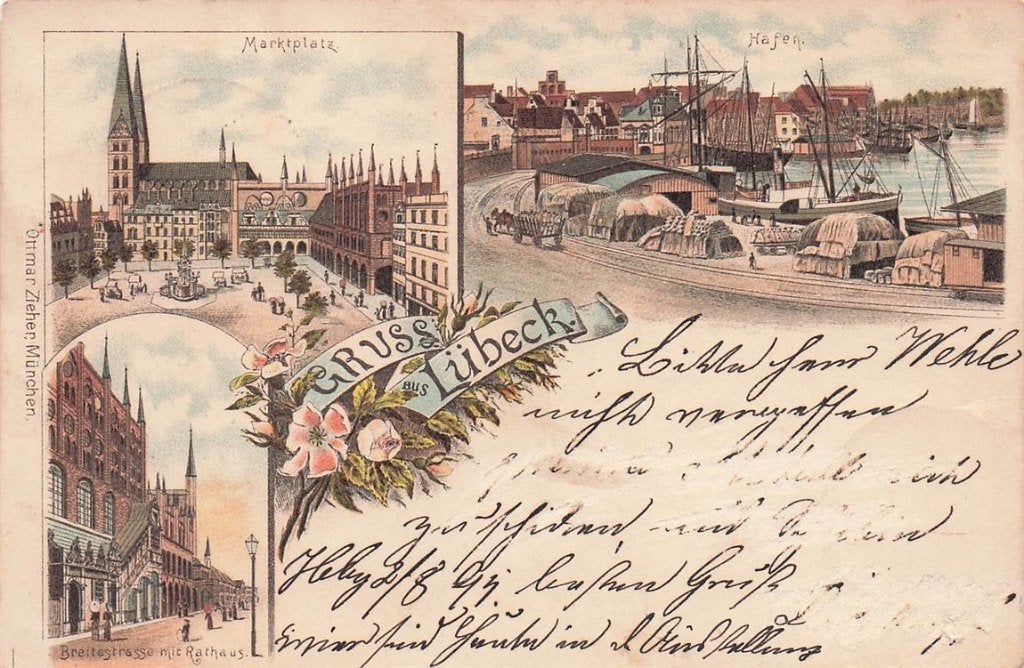 Marktplatz.
Hafen.
Ottmar Zieher, München.
GRUSS
aus
Lübeck.
Breitestrasse mit Rathaus.
Bitte Herr Wehle
nicht vergessen
mich
zu schicken, und
Hbg 2/8 95 besten Gruß
wier sind Heute in d Ausstellung